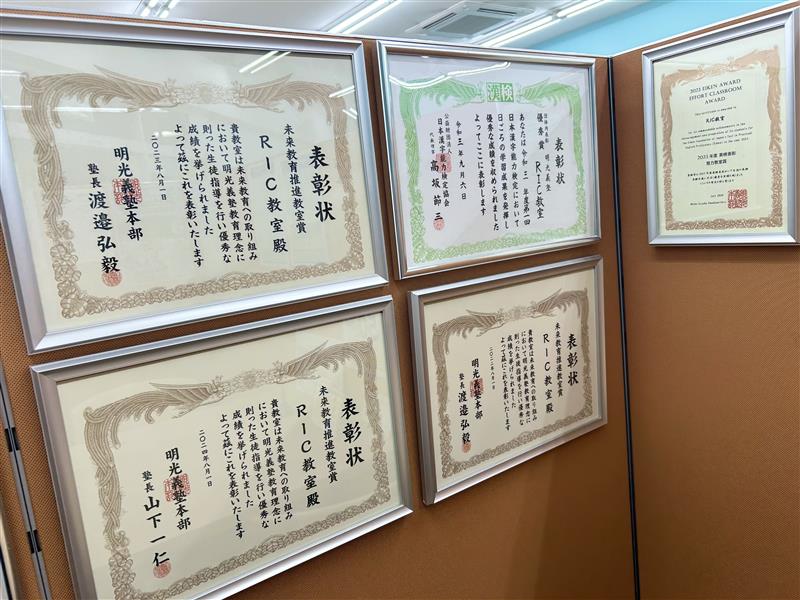 表彰状
未来教育推進教室賞
RIC教室殿
貴教室は未来教育への取り組み
において明光義塾教育理念に
則った生徒指導を行い優秀な
成績を挙げられました
よって茲にこれを表彰いたします
二〇二三年八月一日
明光義塾本部
塾長 渡邉弘毅
漢検
表彰状
優秀賞 RIC教室
あなたは令和三年度第一回
日本漢字能力検定において
日ごろの学習成果を発揮し
優秀な成績を収められました
よってここに表彰します
令和三年九月六日
公益財団法人
日本漢字能力検定協会
代表理事 高坂節三
2023 EIKEN AWARD
EFFORT CLASSROOM
AWARD
2023年度 英検表彰
努力教室賞
表彰状
未来教育推進教室賞
RIC教室殿
貴教室は未来教育への取り組み
において明光義塾教育理念に
則った生徒指導を行い優秀な
成績を挙げられました
よって茲にこれを表彰いたします
二〇二四年八月一日
明光義塾本部
塾長 山下一仁
表彰状
未来教育推進教室賞
RIC教室殿
貴教室は未来教育への取り組み
において明光義塾教育理念に
則った生徒指導を行い優秀な
成績を挙げられました
よって茲にこれを表彰いたします
二〇二二年八月一日
明光義塾本部
塾長 渡邉弘毅